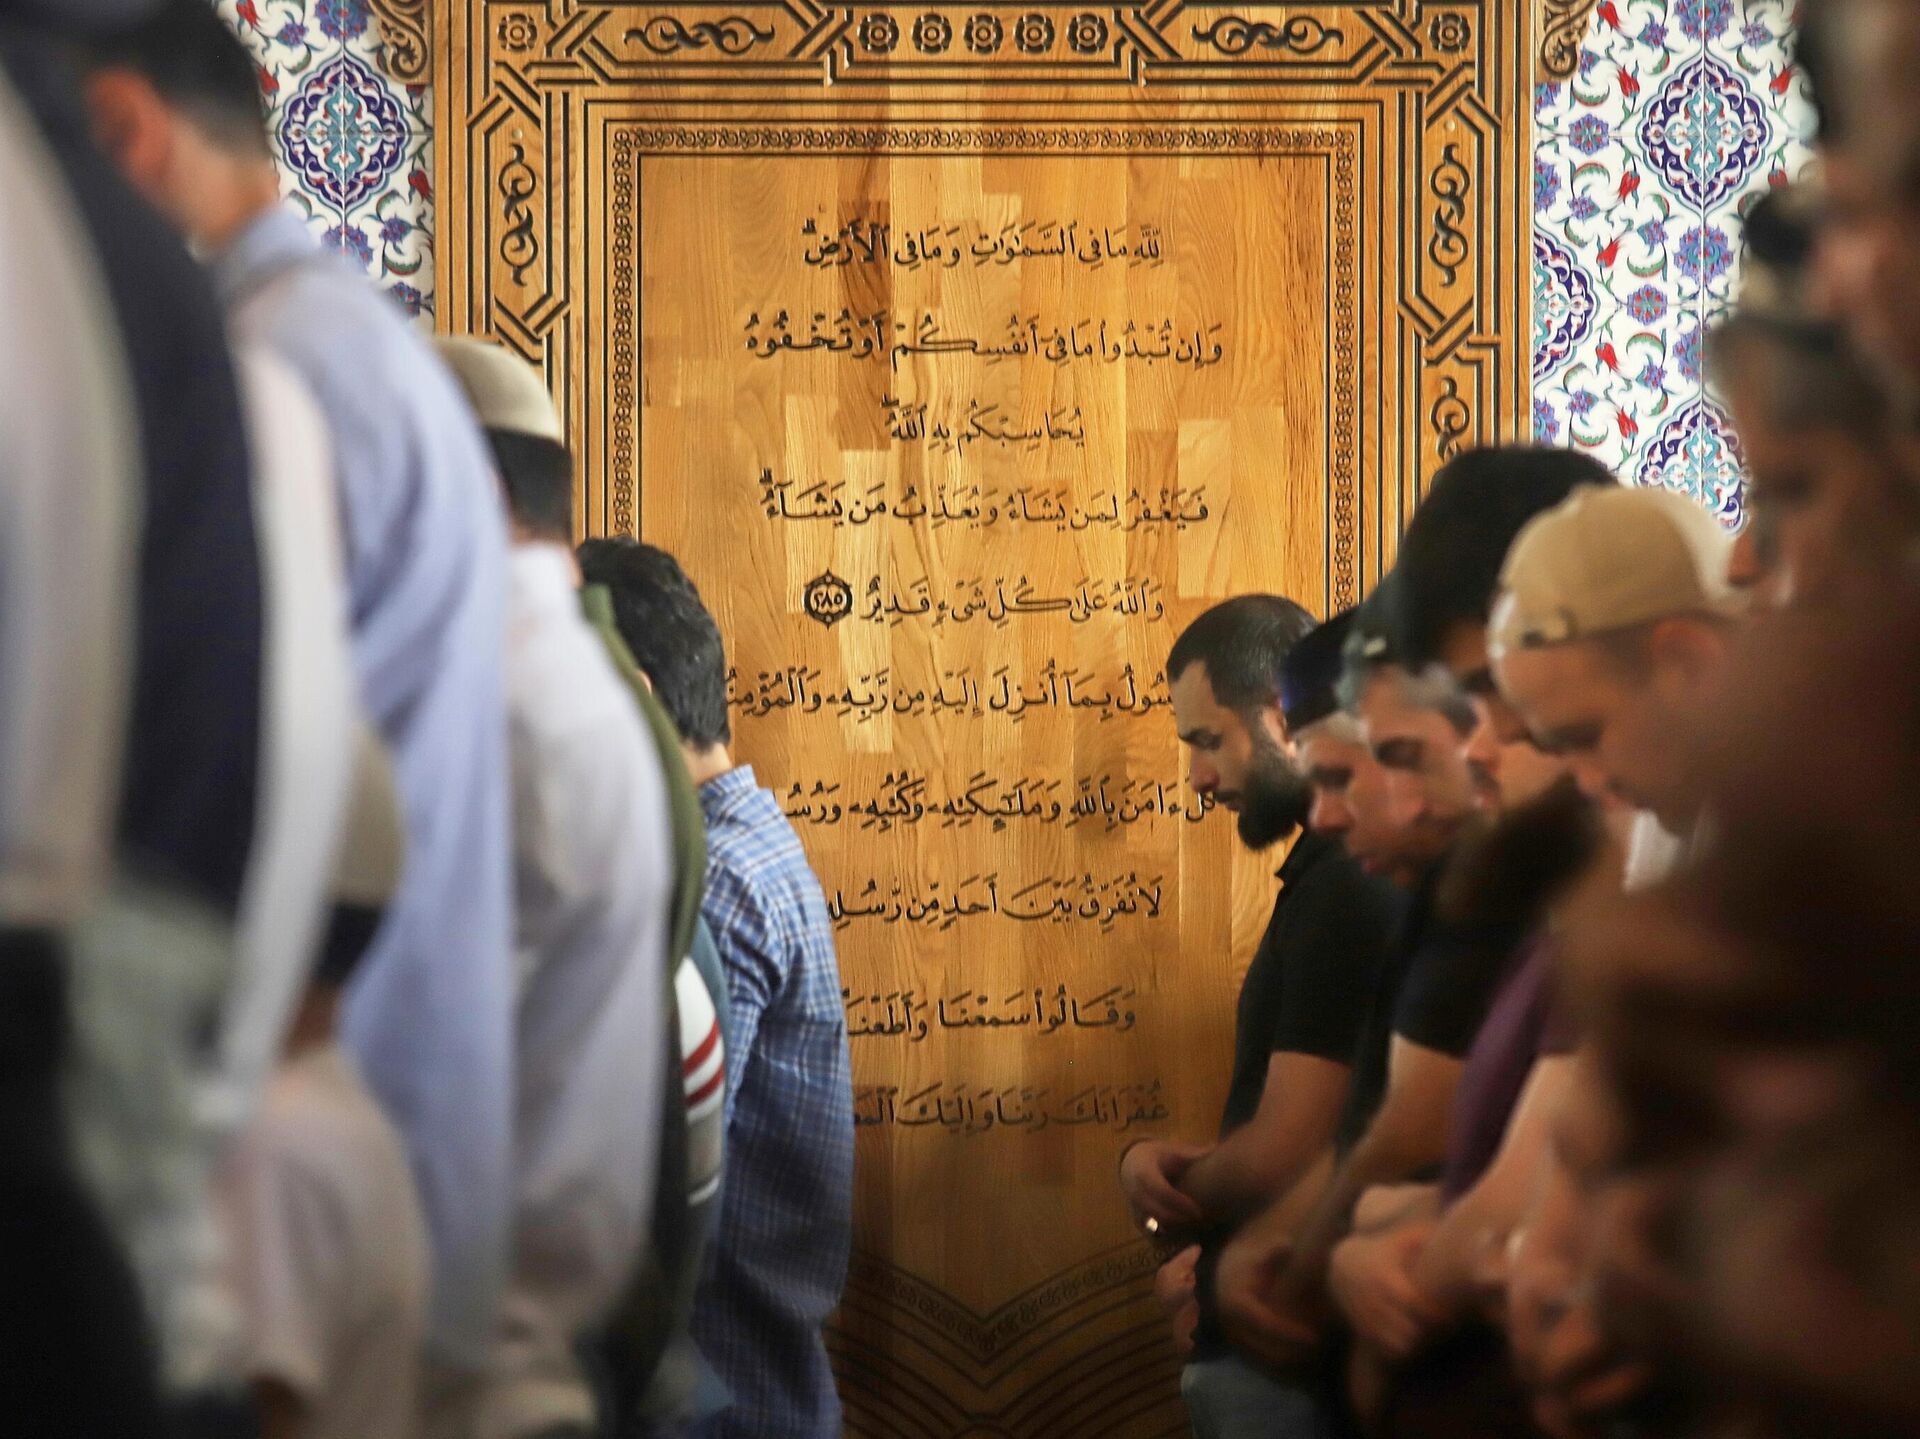 لِّلَّهِ مَا فِي ٱلسَّمَٰوَٰتِ وَمَا فِي ٱلْأَرْضِۗ
وَإِن تُبْدُوا۟ مَا فِىٓ أَنفُسِكُمْ أَوْ تُخْفُوهُ
يُحَاسِبْكُم بِهِ ٱللَّهُۖ
فَيَغْفِرُ لِمَن يَشَآءُ وَيُعَذِّبُ مَن يَشَآءُۗ
وَٱللَّهُ عَلَىٰ كُلِّ شَىْءٍ قَدِيرٌ ٢٨٥
سُولُ بِمَآ أُنزِلَ إِلَيْهِ مِن رَّبِّهِۦ وَٱلْمُؤْمِنُ
كُلٌّ ءَامَنَ بِٱللَّهِ وَمَلَٰٓئِكَتِهِۦ وَكُتُبِهِۦ وَرُسُ
لَا نُفَرِّقُ بَيْنَ أَحَدٍ مِّن رُّسُلِهِ
وَقَالُوا۟ سَمِعْنَا وَأَطَعْنَا
غُفْرَانَكَ رَبَّنَا وَإِلَيْكَ ٱلْمَ